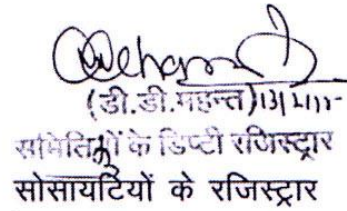 (डी.डी.महन्त)
समितियों के डिप्टी रजिस्ट्रार
सोसायटियों के रजिस्ट्रार